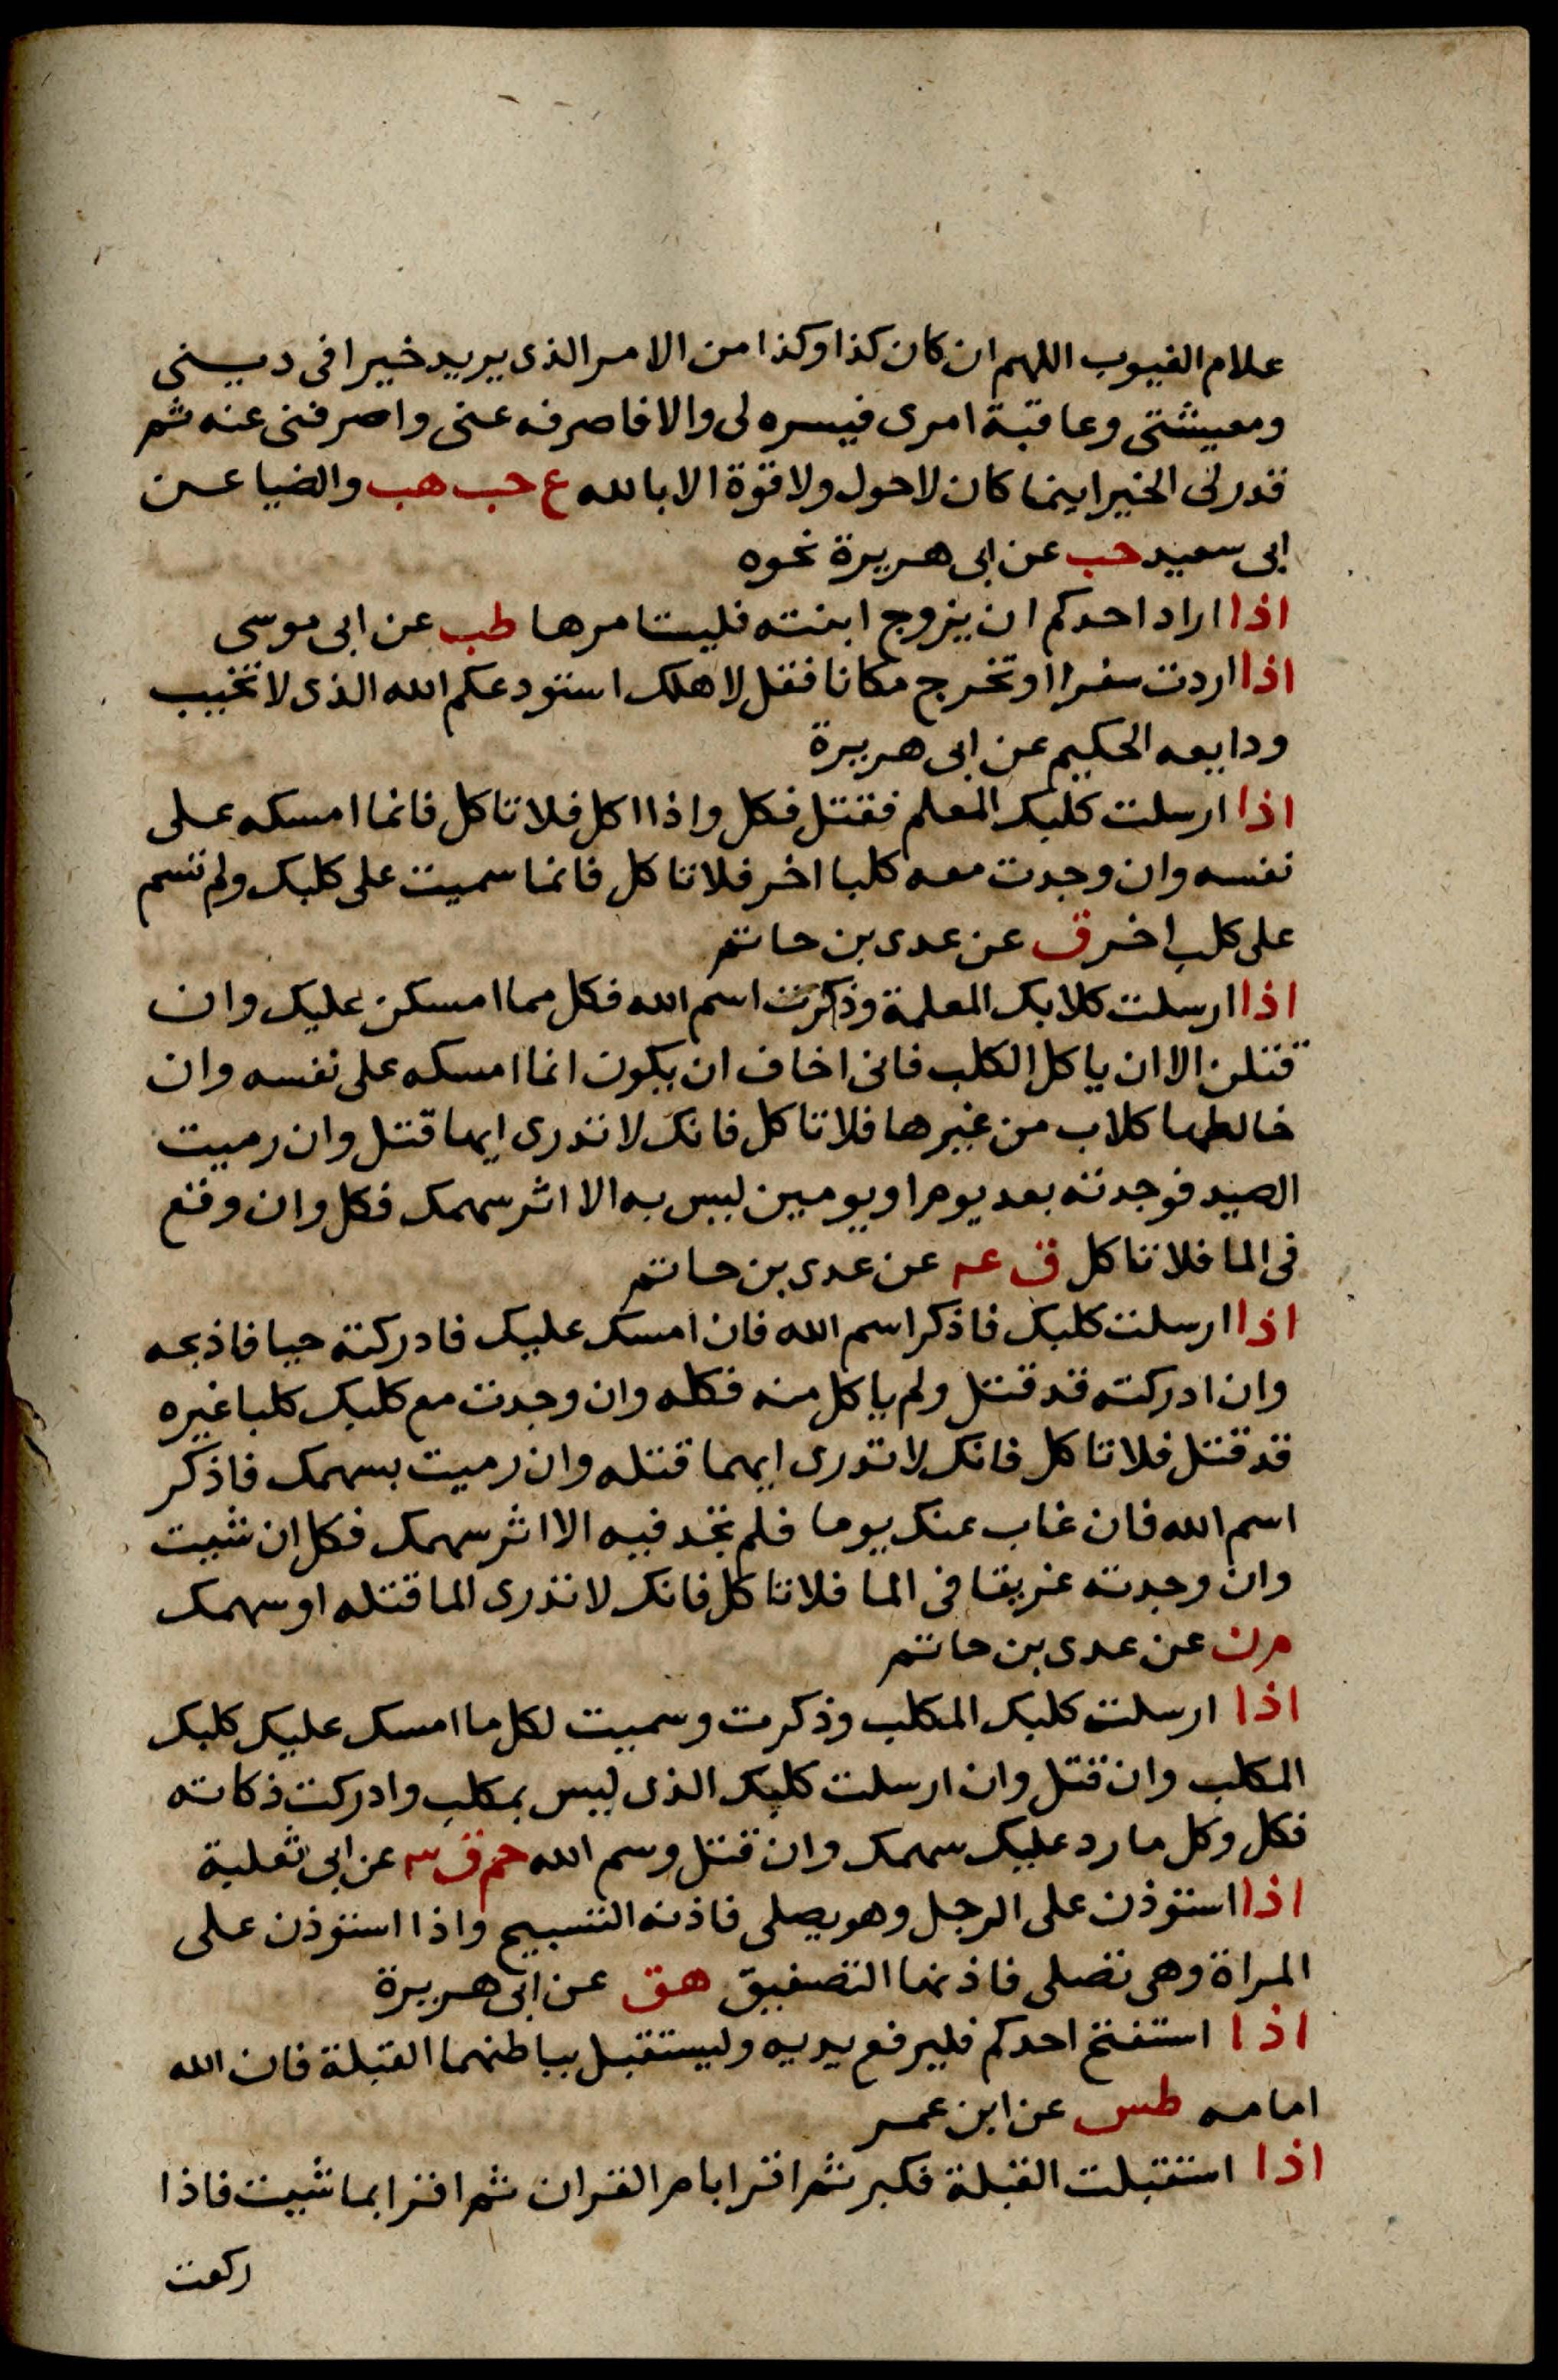 علام الغيوب اللهم ان كان كذا وكذا من الامر الذى يريد خيرا فى دينى
ومعيشتى وعاقبة امرى فيسره لى والا فاصرفه عنى واصرفنى عنه ثم
قدر لى الخير اينما كان لا حول ولا قوة الا بالله ع حب هب والضيا عن
ابى سعيد حب عن ابى هريرة نحوه
اذا اراد احدكم ان يزوج ابنته فليستامرها طب عن ابى موسى
اذا اردت سفرا او تخرج مكانا فقل لاهلك استودعكم الله الذى لا تخيب
ودايعه الحكيم عن ابى هريرة
اذا ارسلت كلبك المعلم فقتل فكل واذا اكل فلا تاكل فانما امسكه على
نفسه وان وجدت معه كلبا اخر فلا تاكل فانما سميت على كلبك ولم تسم
على كلب اخر ق عن عدى بن حاتم
اذا ارسلت كلابك المعلمة وذكرت اسم الله فكل مما امسكن عليك وان
قتلن الا ان ياكل الكلب فانى اخاف ان يكون انما امسكه على نفسه وان
خالطها كلاب من غيرها فلا تاكل فانك لا تدرى ايها قتل وان رميت
الصيد فوجدته بعد يوم او يومين ليس به الا اثر سهمك فكل وان وقع
فى الما فلا تاكل ق عه عن عدى بن حاتم
اذا ارسلت كلبك فاذكر اسم الله فان امسك عليك فادركته حيا فاذبحه
وان ادركته قد قتل ولم ياكل منه فكله وان وجدت مع كلبك كلبا غيره
قد قتل فلا تاكل فانك لا تدرى ايهما قتله وان رميت بسهمك فاذكر
اسم الله فان غاب عنك يوما فلم تجد فيه الا اثر سهمك فكل ان شيت
وان وجدته غريقا فى الما فلا تاكل فانك لا تدرى الما قتله او سهمك
م ن عن عدى بن حاتم
اذا ارسلت كلبك المكلب وذكرت وسميت لكل ما امسك عليك كلبك
المكلب وان قتل وان ارسلت كلبك الذى ليس بمكلب وادركت ذكاته
فكل وكل ما رد عليك سهمك وان قتل وسم الله حم ق عن ابى ثعلبة
اذا استوذن على الرجل وهو يصلى فاذنه التسبيح واذا استوذن على
المراة وهى تصلى فاذنها التصفيق هق عن ابى هريرة
اذا استفتح احدكم فليرفع يديه وليستقبل بباطنهما القبلة فان الله
امامه طس عن ابن عمر
اذا استقبلت القبلة فكبر ثم اقرا بام القران ثم اقرا بما شيت فاذا
ركعت